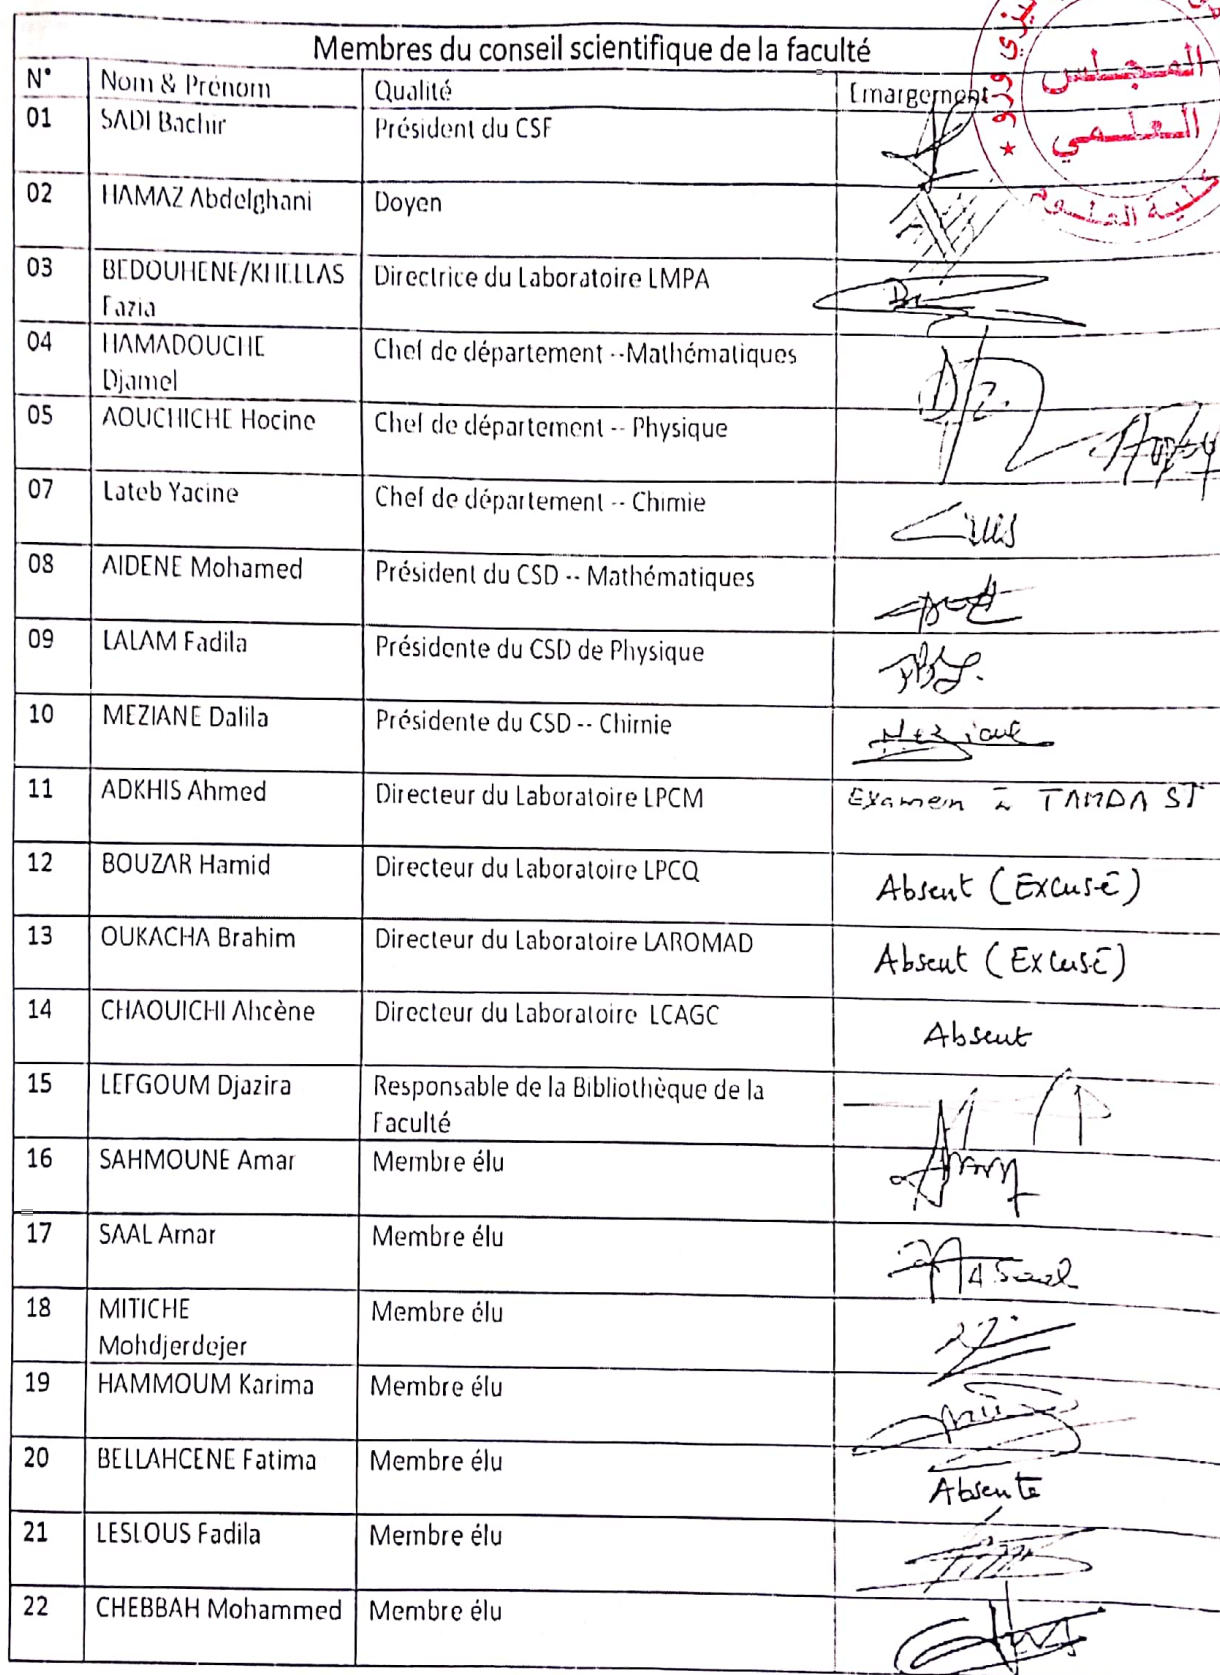 Membres du conseil scientifique de la faculté
N° Nom & Prénom Qualité Emargement
01 SADI Bachir Président du CSF
02 HAMAZ Abdelghani Doyen
03 BEDOUHENE/KHELLAS Directrice du Laboratoire LMPA
Fazia
04 HAMADOUCHE Chef de département --Mathématiques
Djamel
05 AOUCHICHE Hocine Chef de département -- Physique
07 Lateb Yacine Chef de département -- Chimie
08 AIDENE Mohamed Président du CSD -- Mathématiques
09 LALAM Fadila Présidente du CSD de Physique
10 MEZIANE Dalila Présidente du CSD -- Chimie Meziane
11 ADKHIS Ahmed Directeur du Laboratoire LPCM Examen à TAMDA ST
12 BOUZAR Hamid Directeur du Laboratoire LPCQ Absent (Excusé)
13 OUKACHA Brahim Directeur du Laboratoire LAROMAD Absent (Excusé)
14 CHAOUICHI Ahcène Directeur du Laboratoire LCAGC Absent
15 LEFGOUM Djazira Responsable de la Bibliothèque de la
Faculté
16 SAHMOUNE Amar Membre élu
17 SAAL Amar Membre élu A Saal
18 MITICHE Membre élu
Mohdjerdejer
19 HAMMOUM Karima Membre élu
20 BELLAHCENE Fatima Membre élu Absente
21 LESLOUS Fadila Membre élu
22 CHEBBAH Mohammed Membre élu
المجلس
العلمي
كلية العلوم
وزو